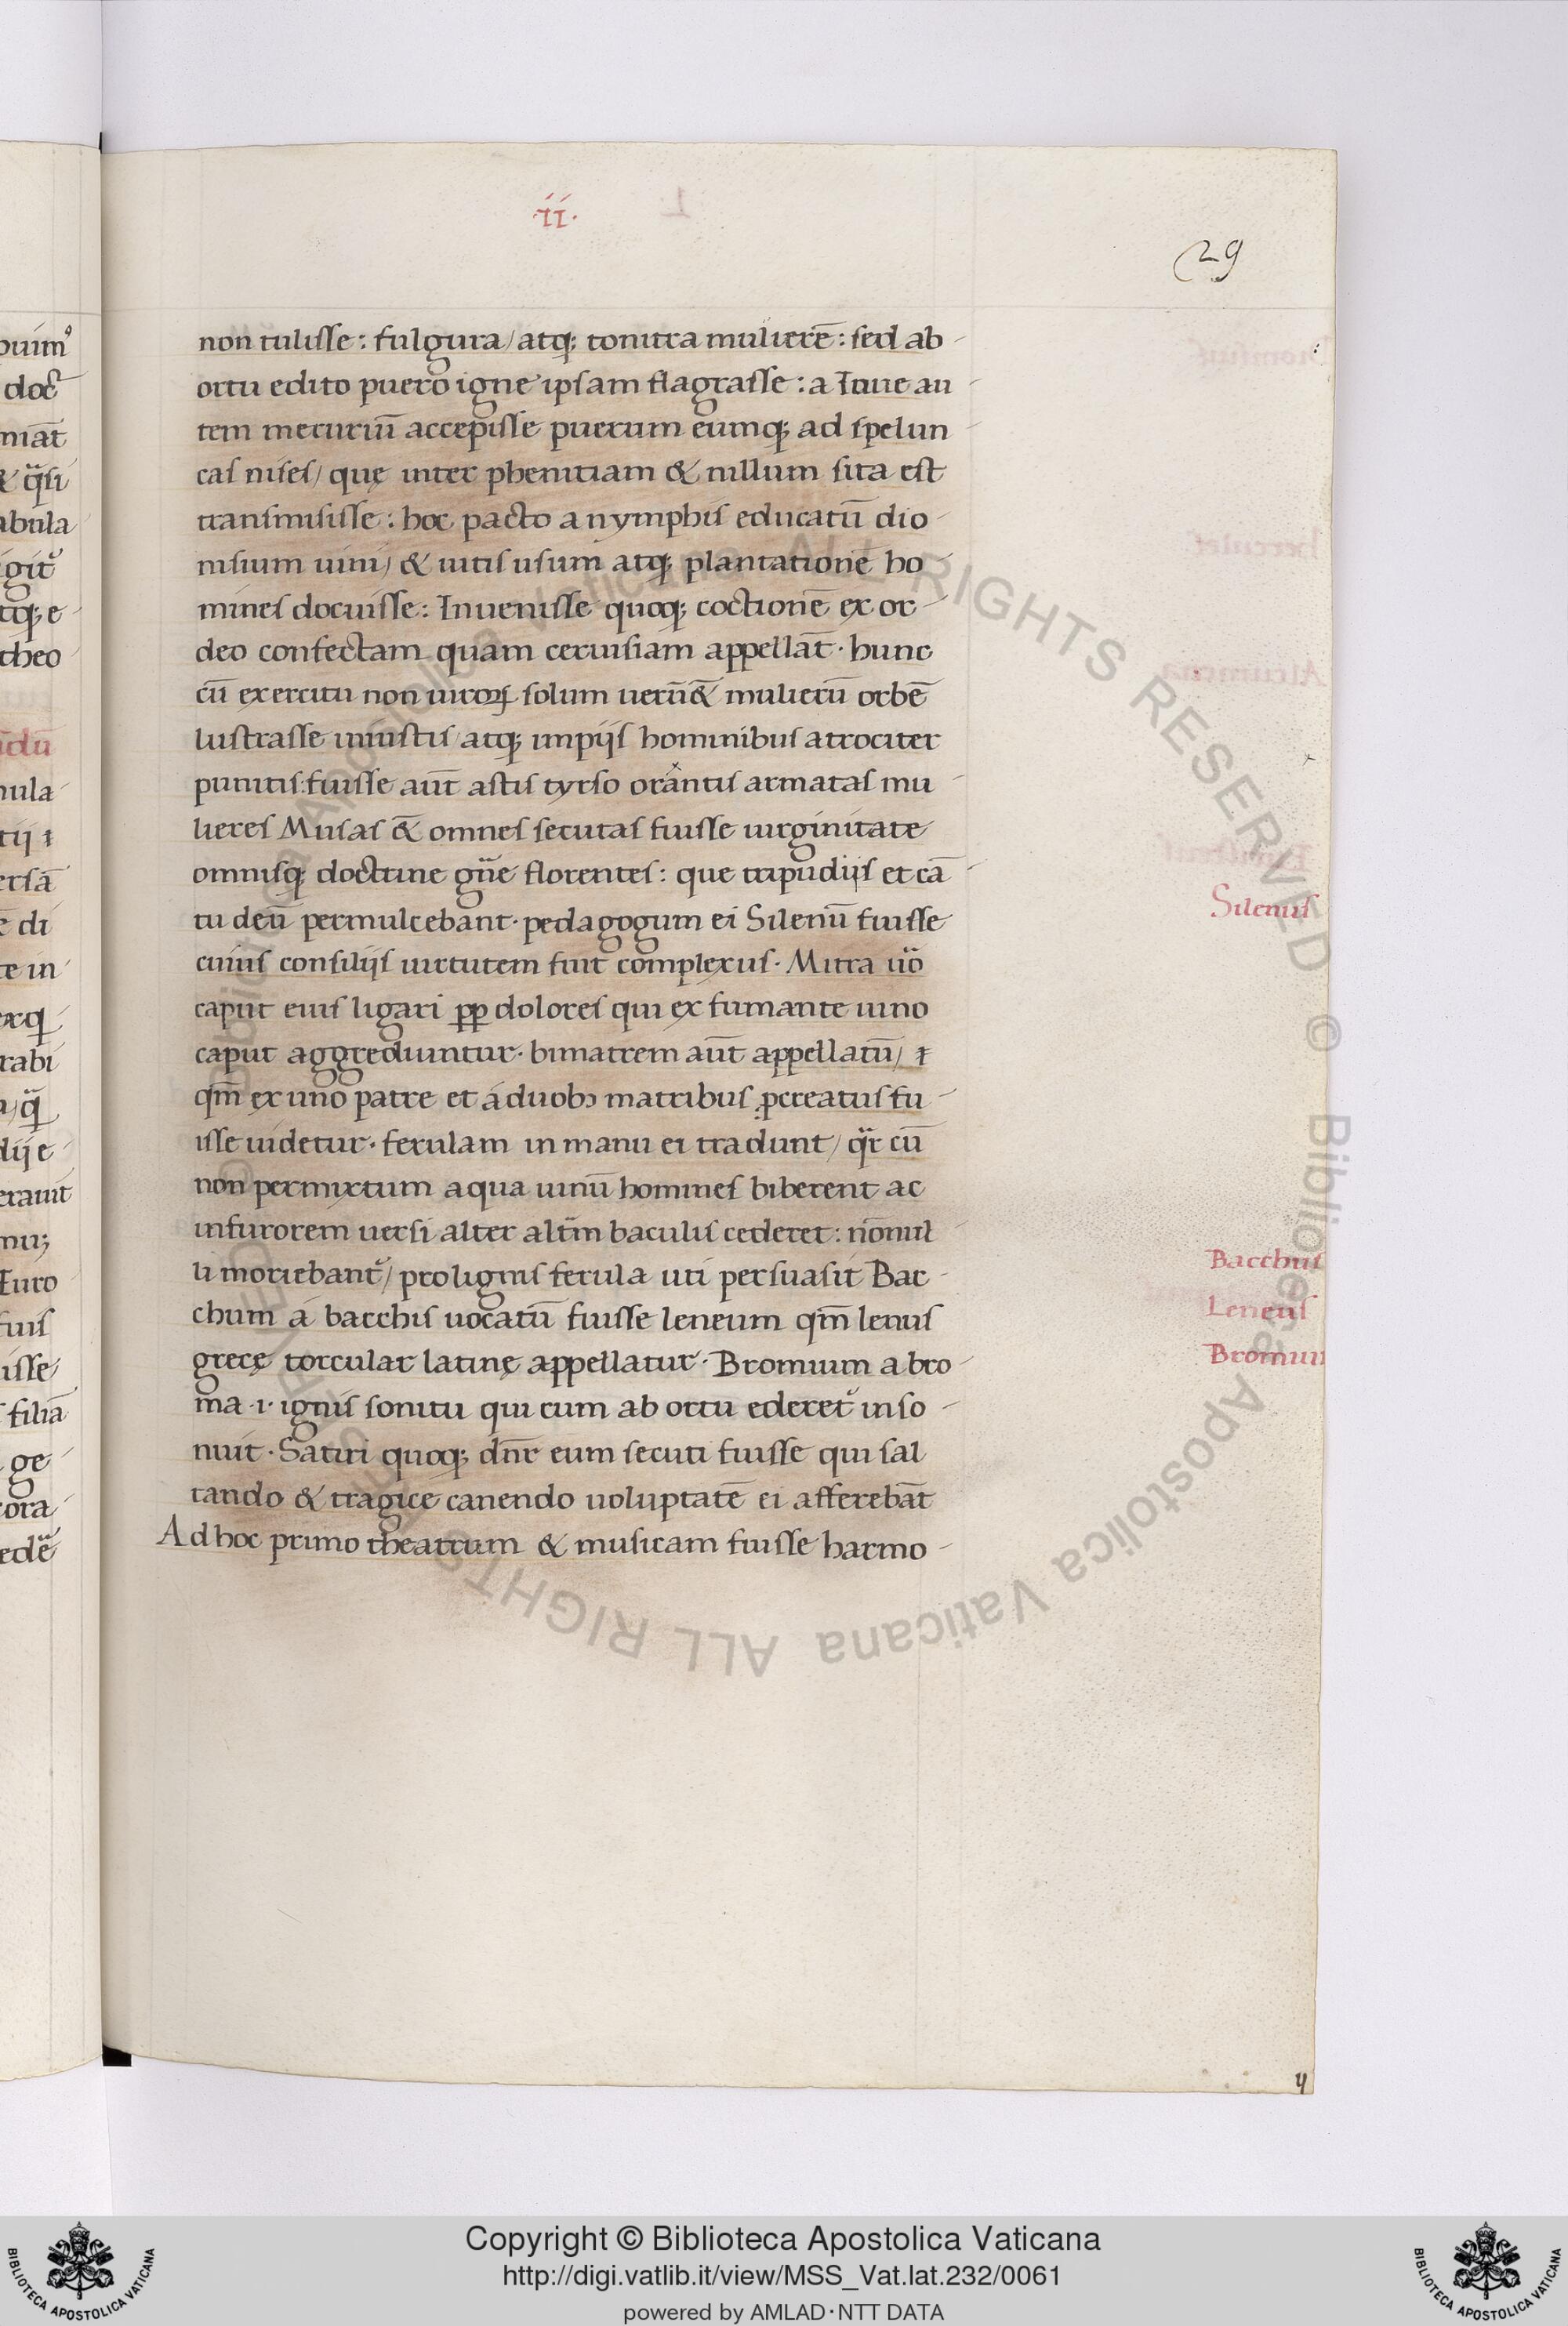 .ii.
29
non tulisse: fulgura/ atq; tonitra mulierē: sed ab-
ortu edito puero igne ipsam flagrasse: a Ioue au-
tem mercuriū accepisse puerum eumq; ad spelun-
cas nises/ quę inter pheniciam & nillum sita est
transmisisse: hoc pacto a nymphis educatū dio-
nisium uini/ & uitis usum atq; plantationē ho-
mines docuisse: Inuenisse quoq; coctionē ex or-
deo confectam quam ceruisiam appellāt· hunc
cū exercitu non uiroꝝ solum uerū& mulierū orbē
lustrasse iniustis/ atq; impijs hominibus atrociter
punitis: fuisse aūt astis tyrso orantis armatas mu-
lieres Musas & omnes secutas fuisse uirginitate
omnisq; doctrine gn̄e florentes: que tripudijs et cā-
tu deū permulcebant· pedagogum ei Silenū fuisse
cuius consilijs uirtutem fuit complexus· Mitra uō
caput eius ligari ꝓꝑ dolores qui ex fumante uino
caput aggrediuntur· bimatrem aūt appellatū/
qm̄ ex uno patre et á duobꝫ matribus ꝓcreatus fu-
isse uidetur· ferulam in manu ei tradunt/ qr cū
non permixtum aqua uinū homines biberent ac
infurorem uersi alter altm̄ baculis cederet: nōnul-
li moriebant᷑/ pro lignis ferula uti persuasit Bac-
chum á bacchis uocatū fuisse leneum qm̄ lenus
grecę torcular latinę appellatur· Bromium a bro-
ma ·i· ignis sonitu qui cum ab ortu ederet᷑ inso-
nuit· Satiri quoq; dn̄r eum secuti fuisse qui sal
tando & tragice canendo uoluptatē ei afferebāt
Ad hoc primo theatrum & musicam fuisse harmo-
Silenus
Bacchus
Leneus
Bromiu
Copyright © Biblioteca Apostolica Vaticana
http://digi.vatlib.it/view/MSS_Vat.lat.232/0061
powered by AMLAD·NTT DATA
BIBLIOTECA APOSTOLICA VATICANA
BIBLIOTECA APOSTOLICA VATICANA
© Biblioteca Apostolica Vaticana ALL RIGHTS RESERVED © Biblioteca Apostolica Vaticana ALL RIGHTS RESERVED